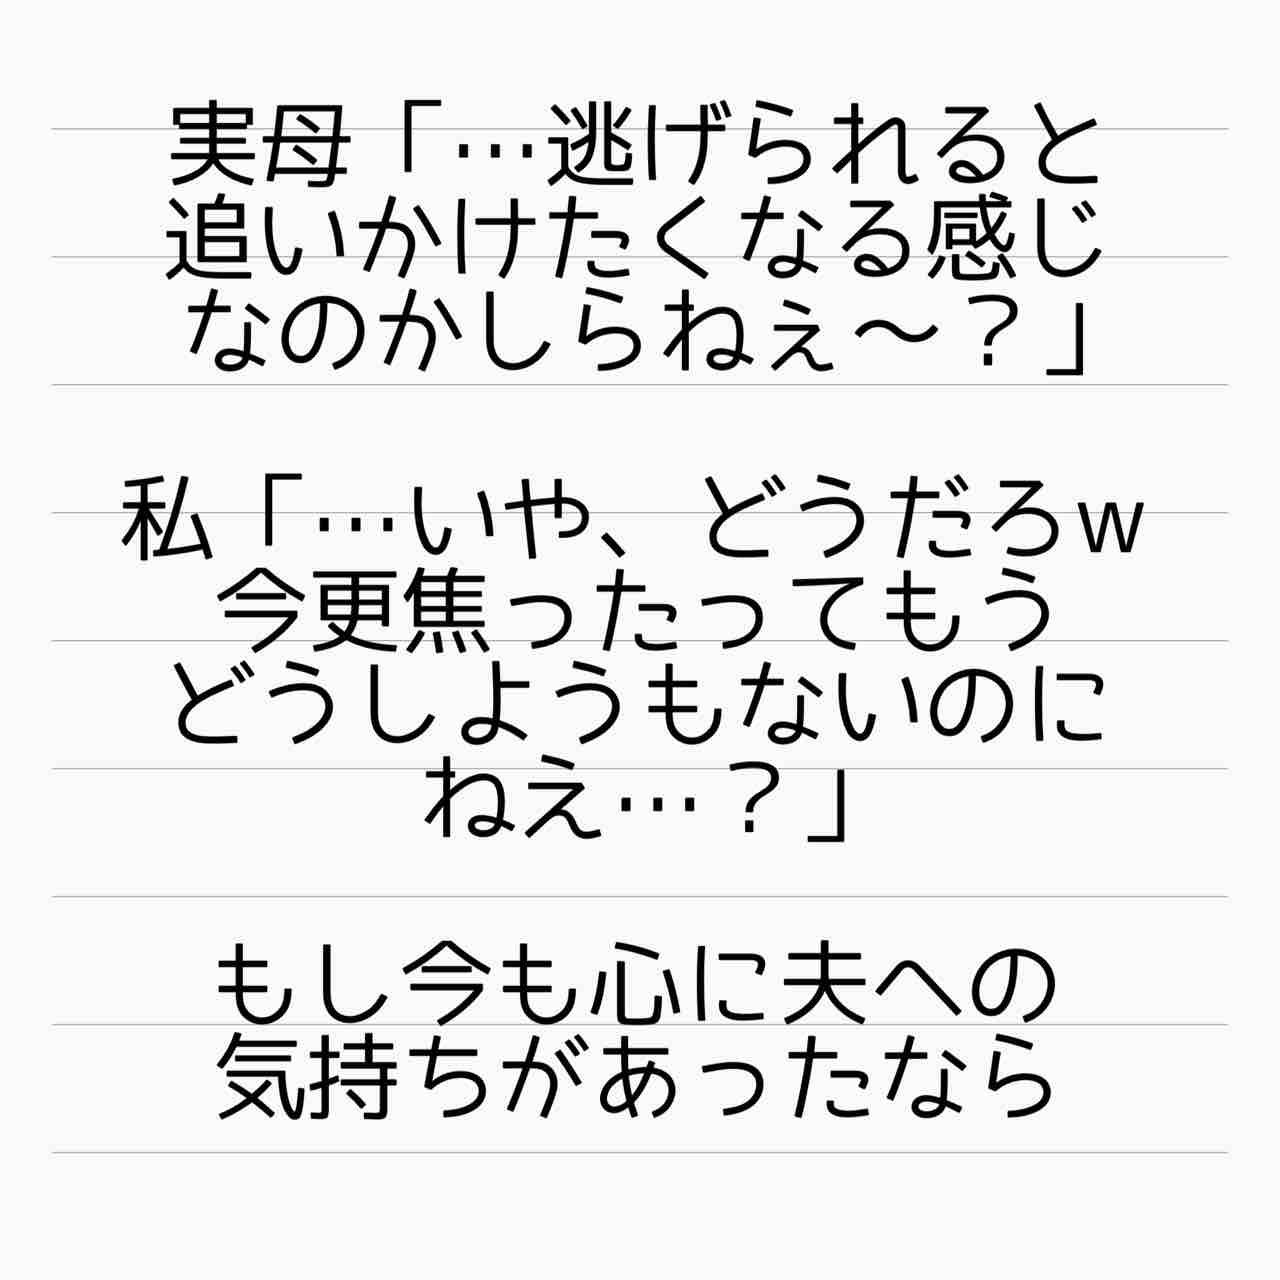 実母「…逃げられると
追いかけたくなる感じ
なのかしらねぇ〜？」
私「…いや、どうだろw
今更焦ったってもう
どうしようもないのに
ねえ…？」
もし今も心に夫への
気持ちがあったなら